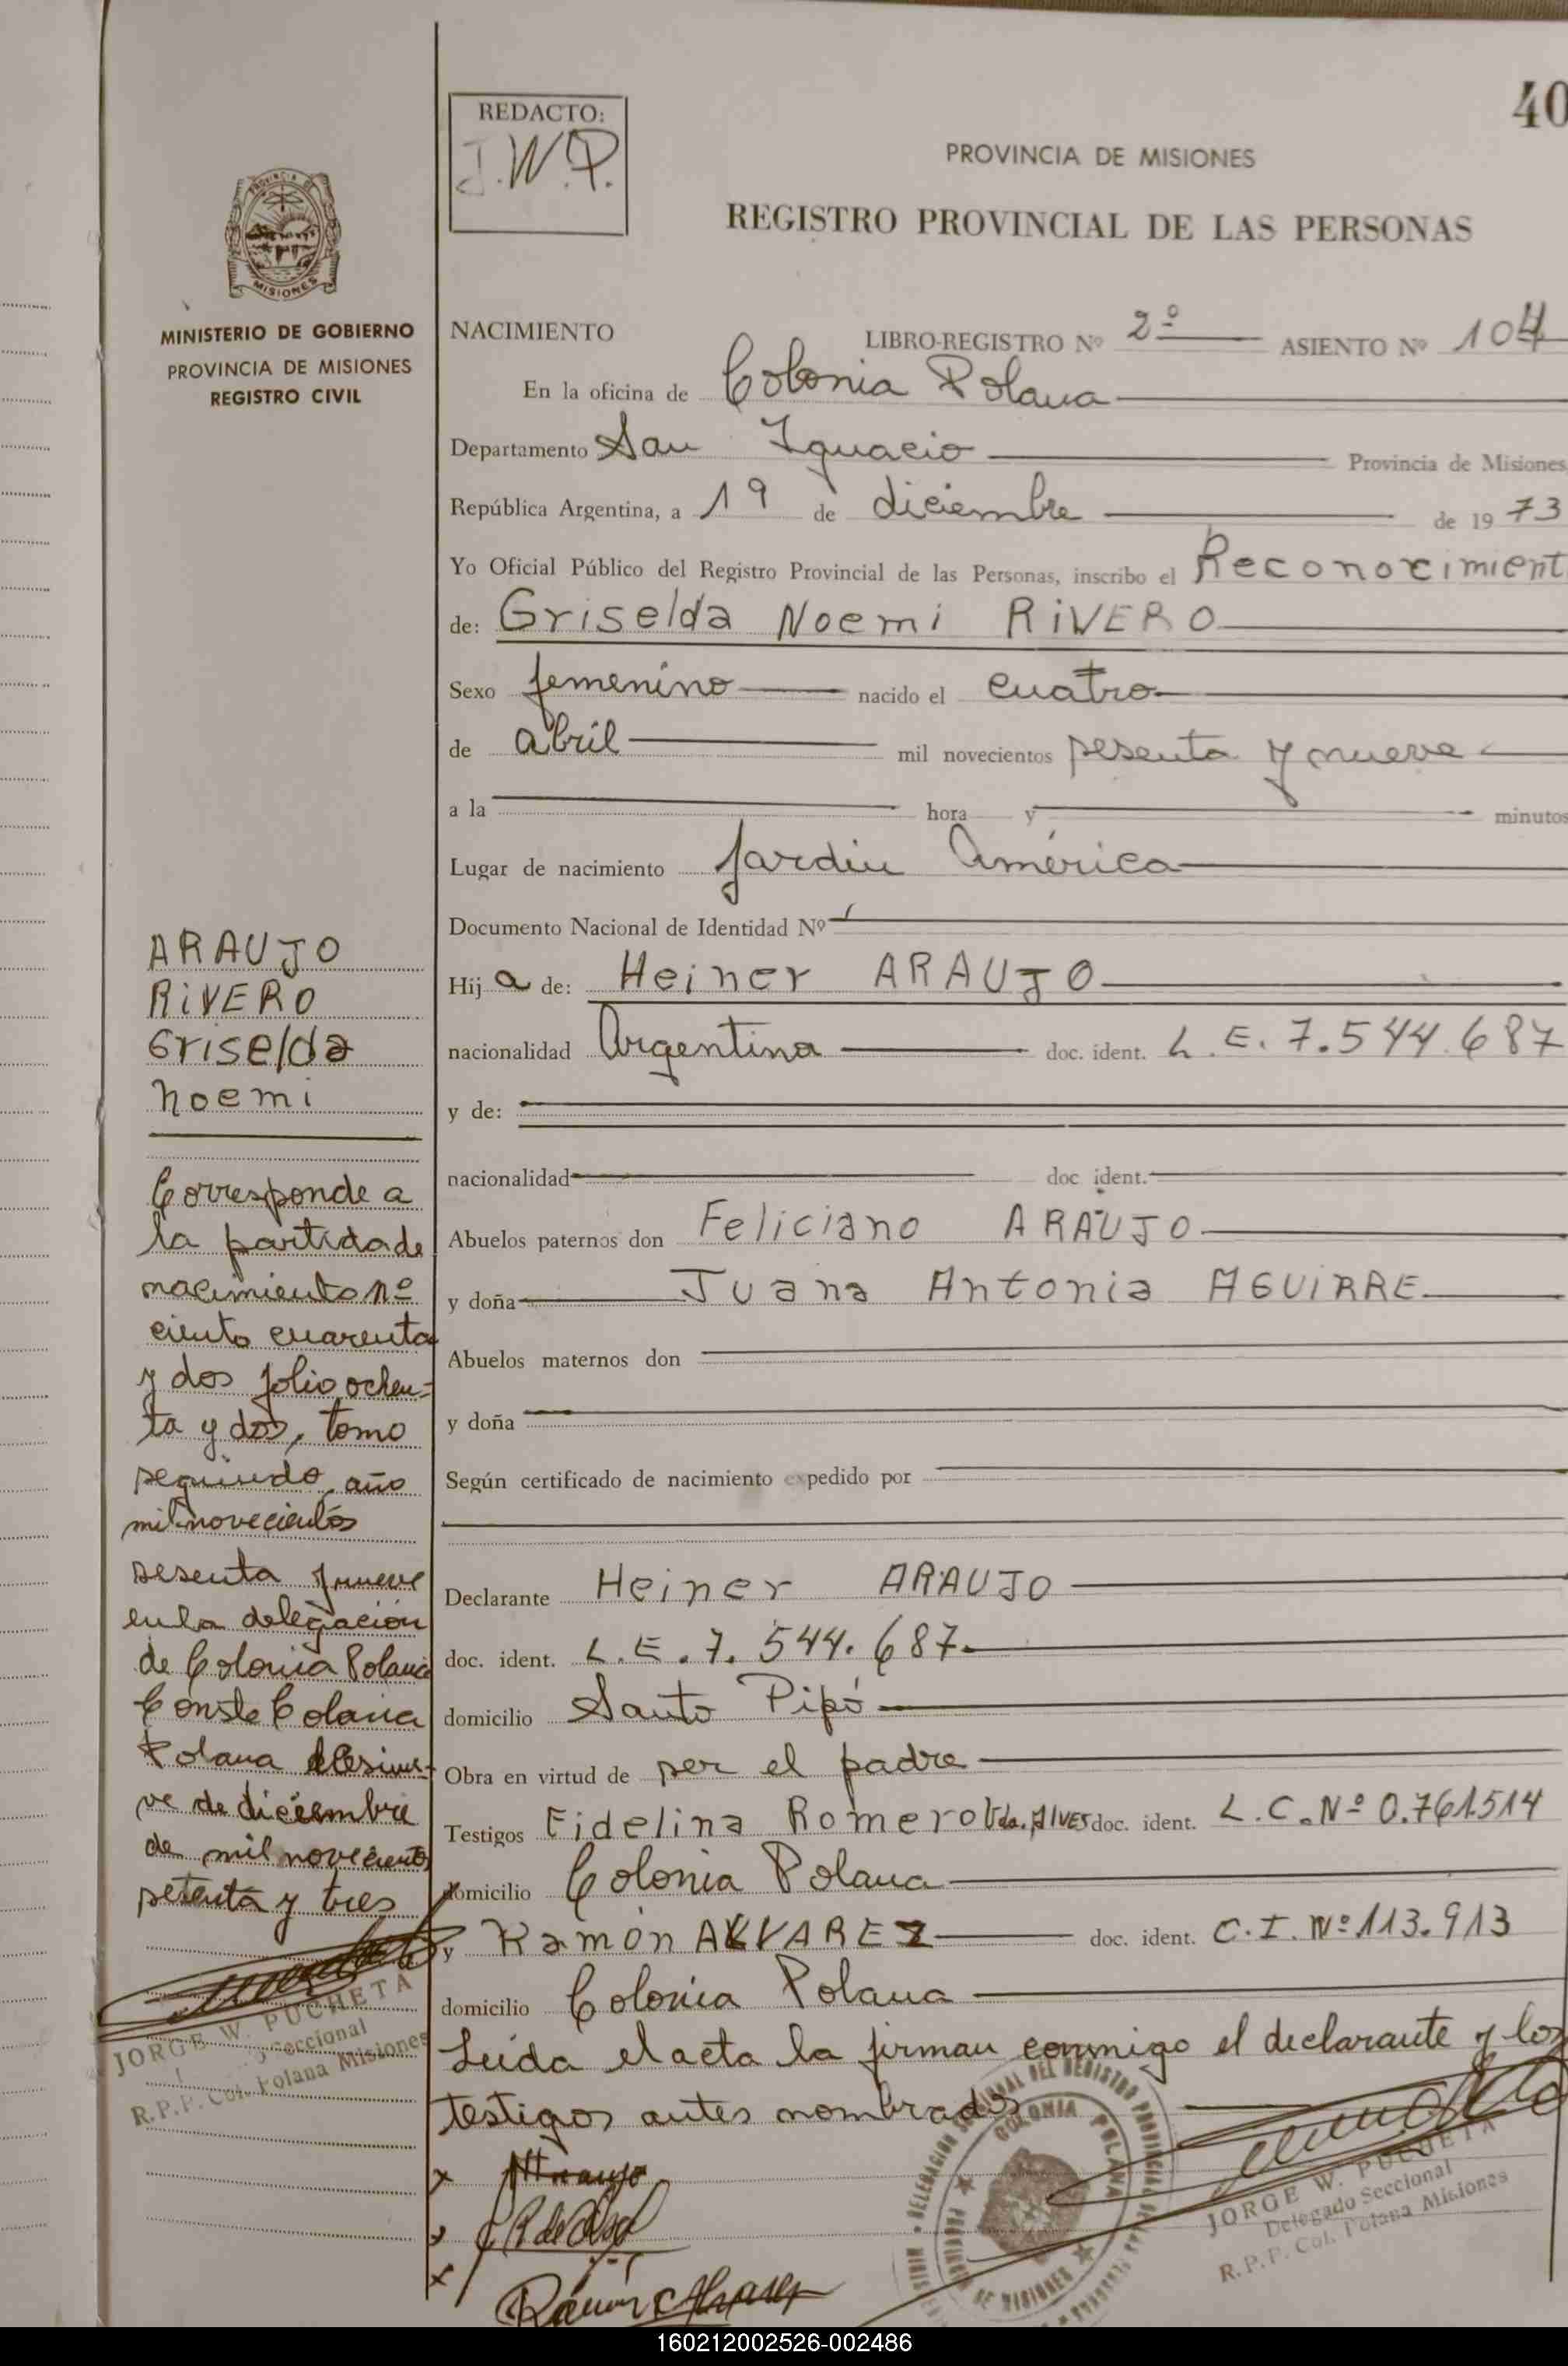 40
REDACTO:
J.W.P.
PROVINCIA DE MISIONES
REGISTRO PROVINCIAL DE LAS PERSONAS
MISIONES
MINISTERIO DE GOBIERNO
PROVINCIA DE MISIONES
REGISTRO CIVIL
NACIMIENTO LIBRO-REGISTRO Nº 2º ASIENTO Nº 104
En la oficina de Colonia Polana
Departamento San Ignacio Provincia de Misiones
República Argentina, a 19 de diciembre de 1973
Yo Oficial Público del Registro Provincial de las Personas, inscribo el Reconocimient
de: Griselda Noemi RIVERO
Sexo femenino nacido el cuatro
de abril mil novecientos sesenta y nueve
a la hora y minutos
Lugar de nacimiento Jardin América
Documento Nacional de Identidad Nº
Hija de: Heiner ARAUJO
nacionalidad Argentina doc. ident. L.E. 7.544.687
y de:
nacionalidad doc. ident.
Abuelos paternos don Feliciano ARAUJO
y doña Juana Antonia AGUIRRE
Abuelos maternos don
y doña
Según certificado de nacimiento expedido por
Declarante Heiner ARAUJO
doc. ident. L.E. 7.544.687
domicilio Santo Pipó
Obra en virtud de ser el padre
Testigos Fidelina Romero Vda. Alves doc. ident. L.C. Nº 0.761.514
domicilio Colonia Polana
y Ramón ALVAREZ doc. ident. C.I. Nº 113.913
domicilio Colonia Polana
Leída el acta la firman conmigo el declarante y los
testigos antes nombrados
ARAUJO
RIVERO
Griselda
Noemi
Corresponde a
la partida de
nacimiento nº
ciento cuarenta
y dos folio ochen-
ta y dos, tomo
segundo, año
mil novecientos
sesenta y nueve
en la delegación
de Colonia Polana
Conste Colonia
Polana
ve de diciembre
de mil novecientos
setenta y tres
JORGE W. PUCHETA
Seccional
R.P.P. Col. Polana Misiones
x HAraujo
x
x Ramón Alvarez
COLONIA POLANA
PROVINCIA DE MISIONES
JORGE W. PUCHETA
Delegado Seccional
R.P.P. Col. Polana Misiones
160212002526-002486